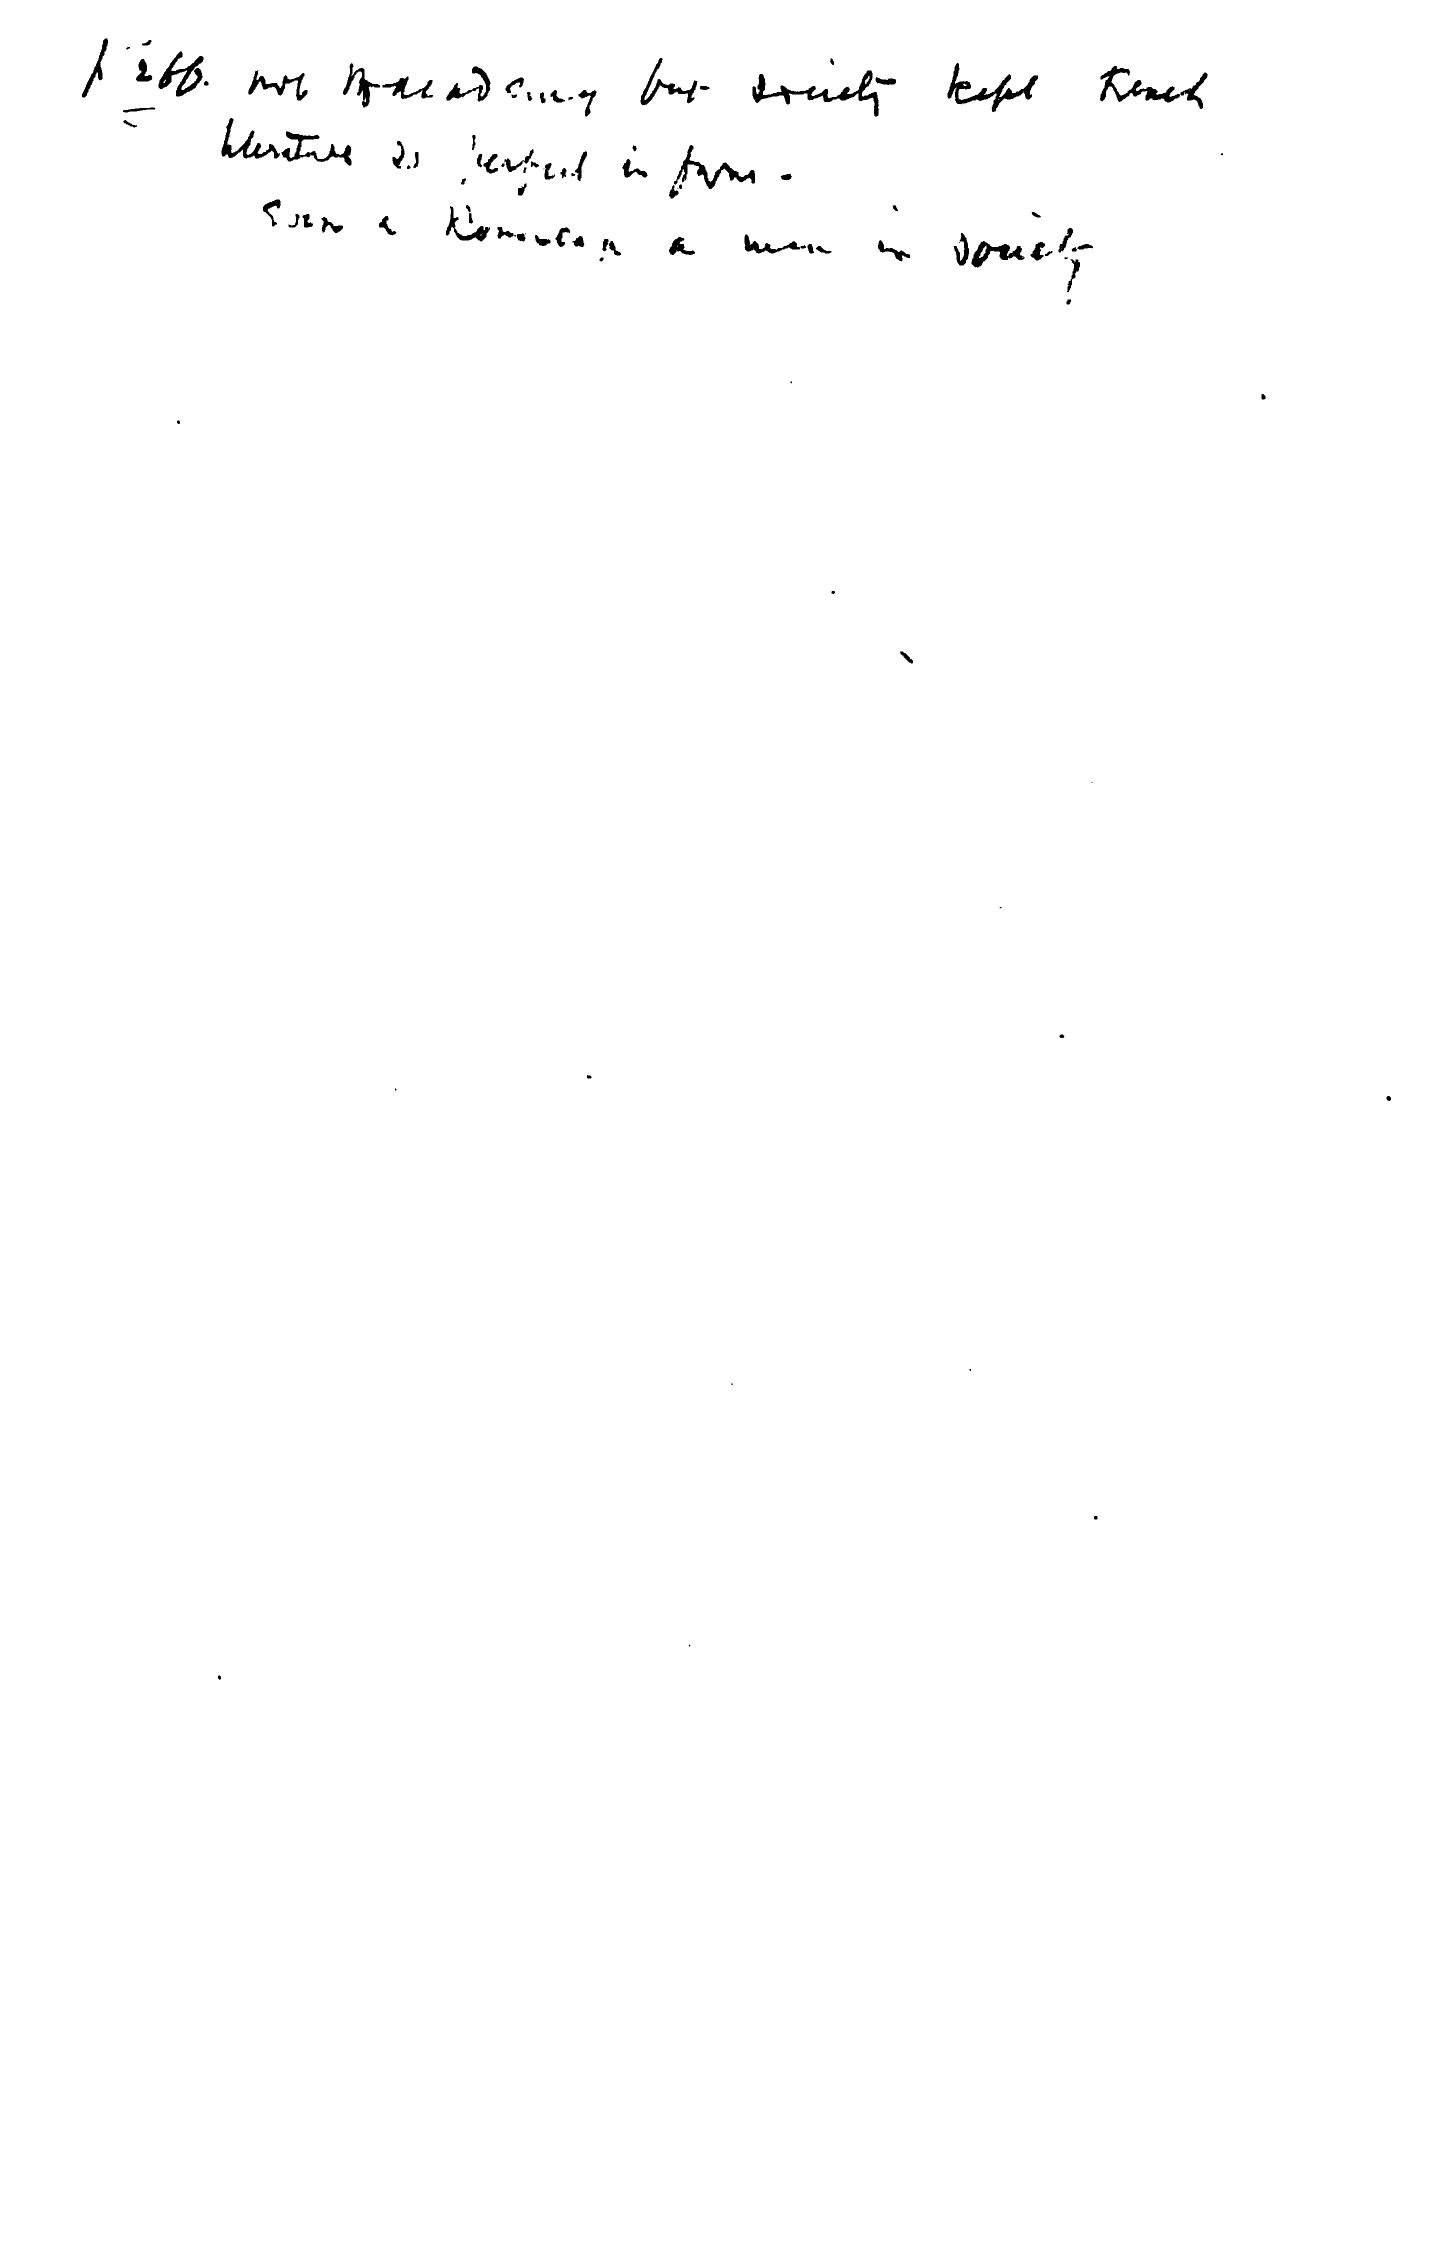 p 266. not Academy but society kept French
literature so perfect in form -
Even a a man in society